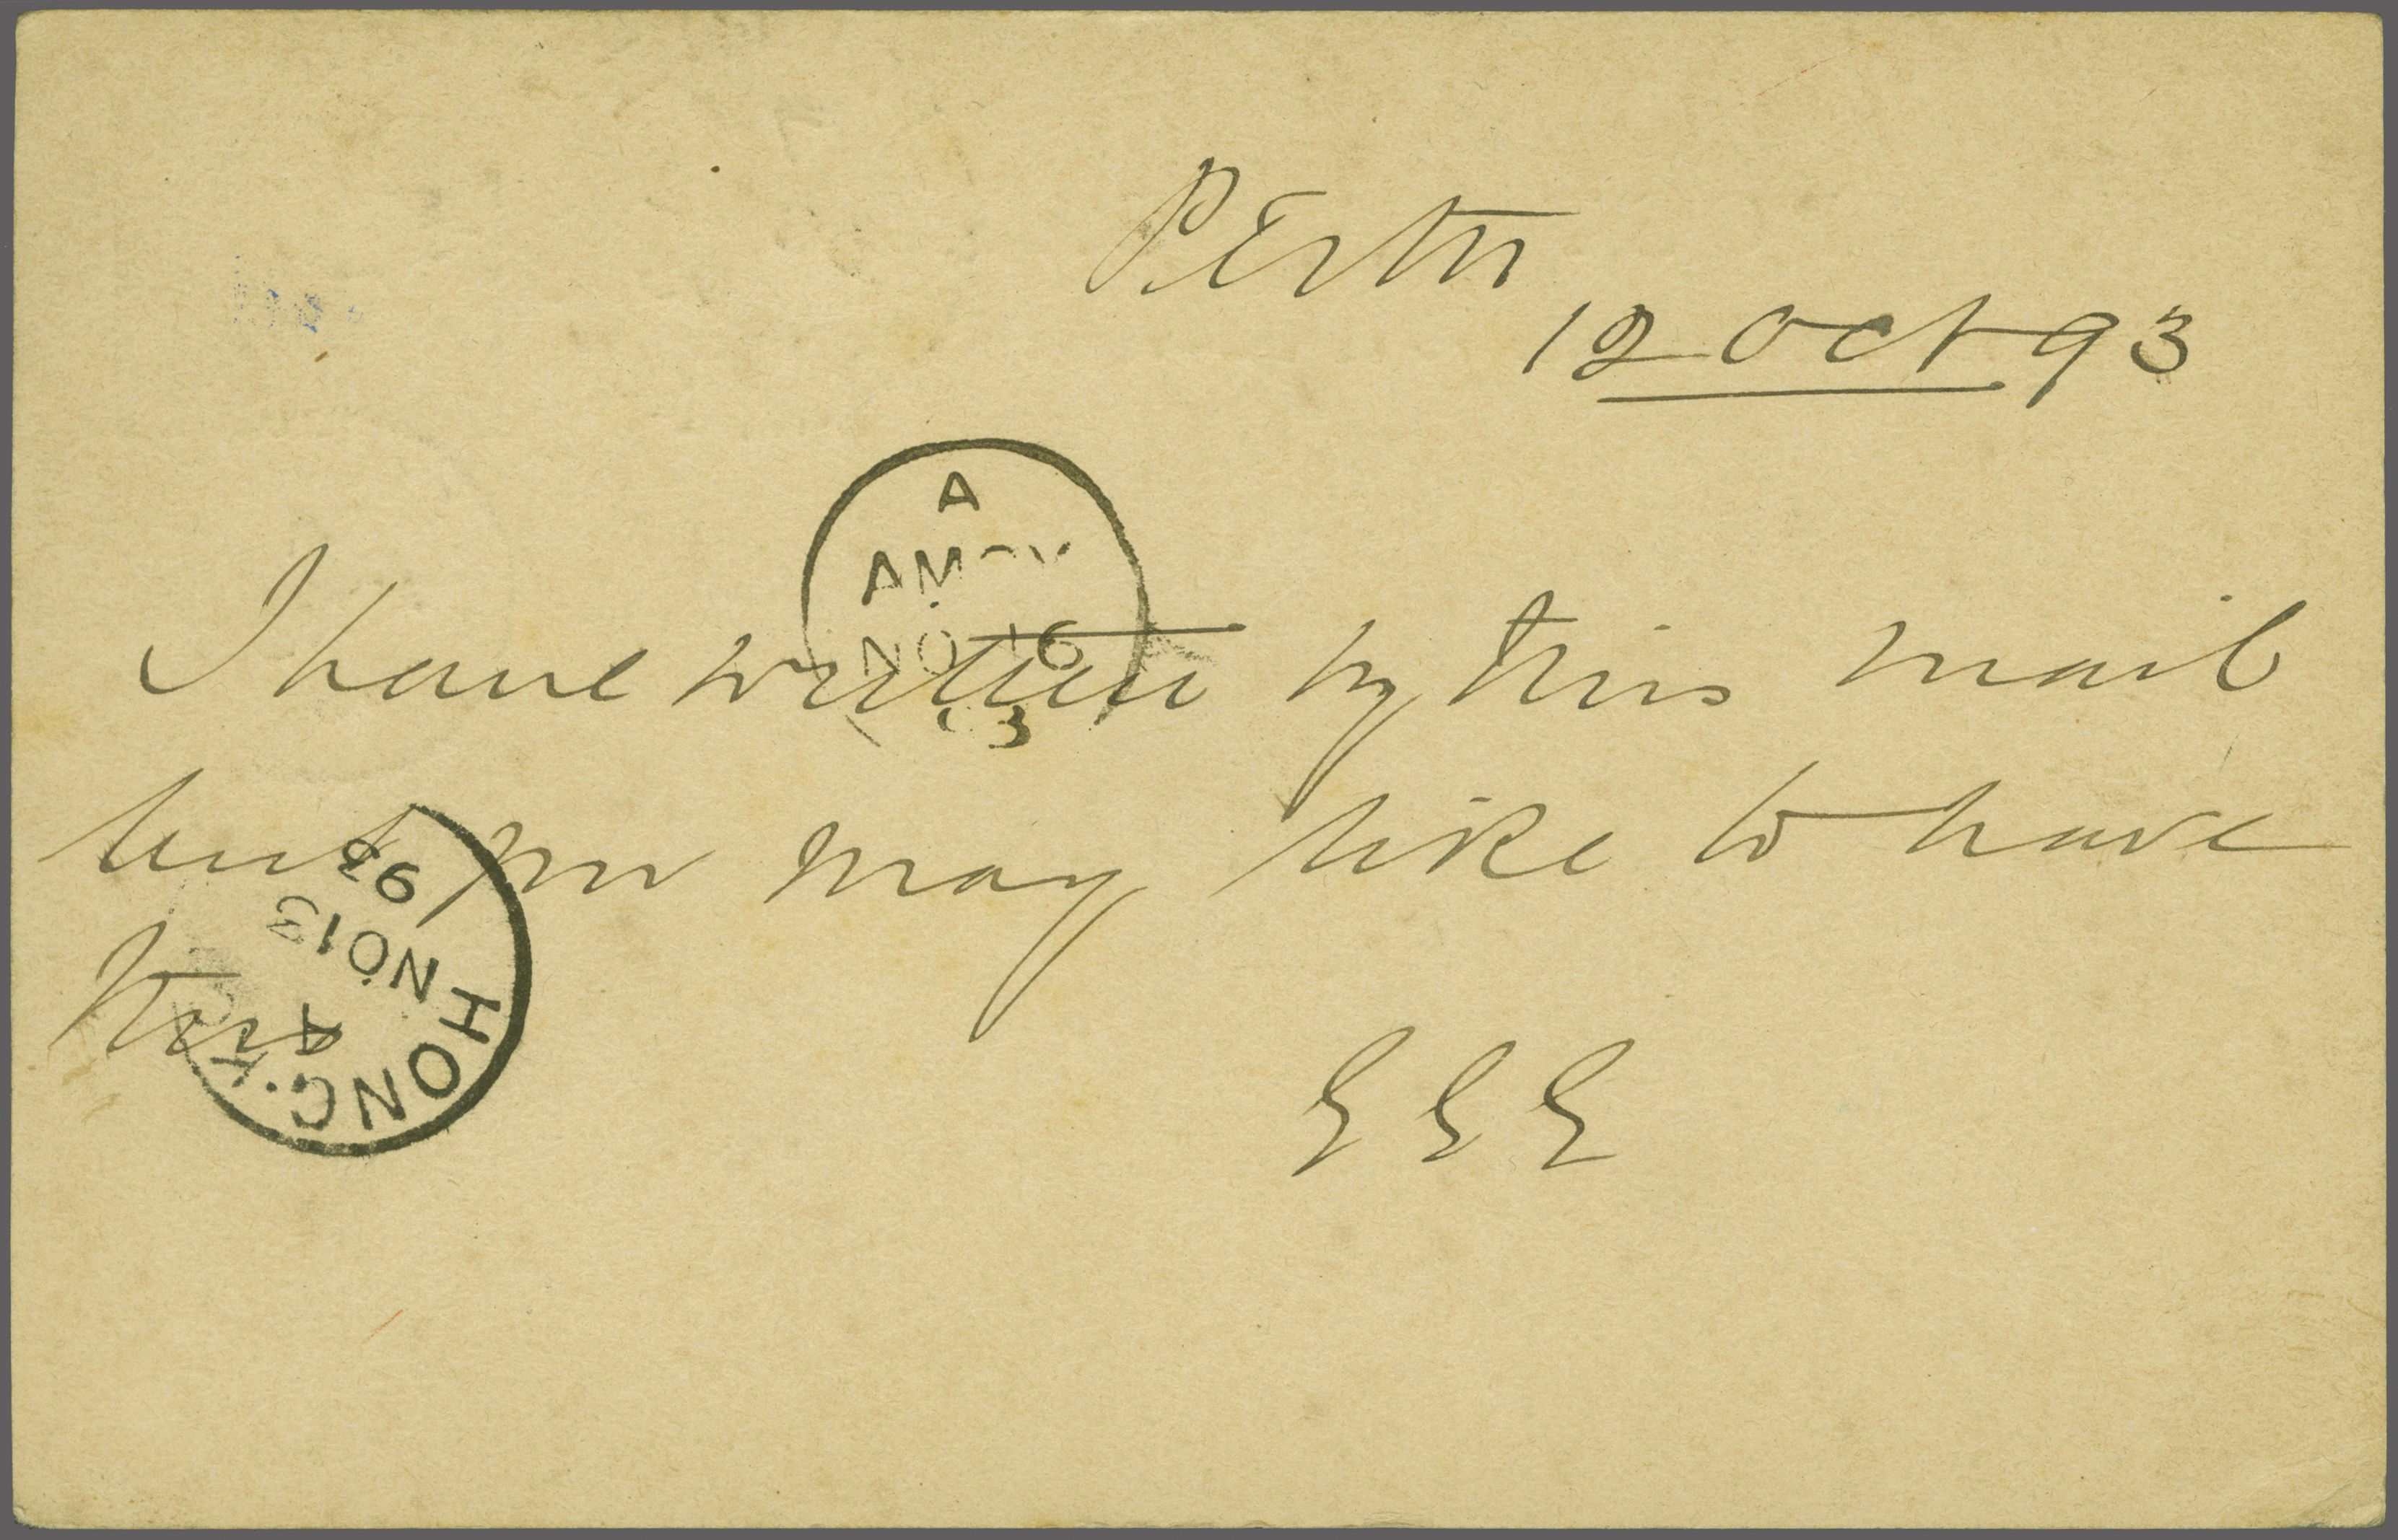 Perth
12 Oct 93
A
AMOY
NO 16
93
I have written by this mail
but you may like to have
this
HONG.K
A
NO 13
93
EEE